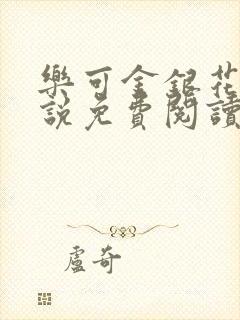 樂可金銀花
說免費閱讀
盧奇